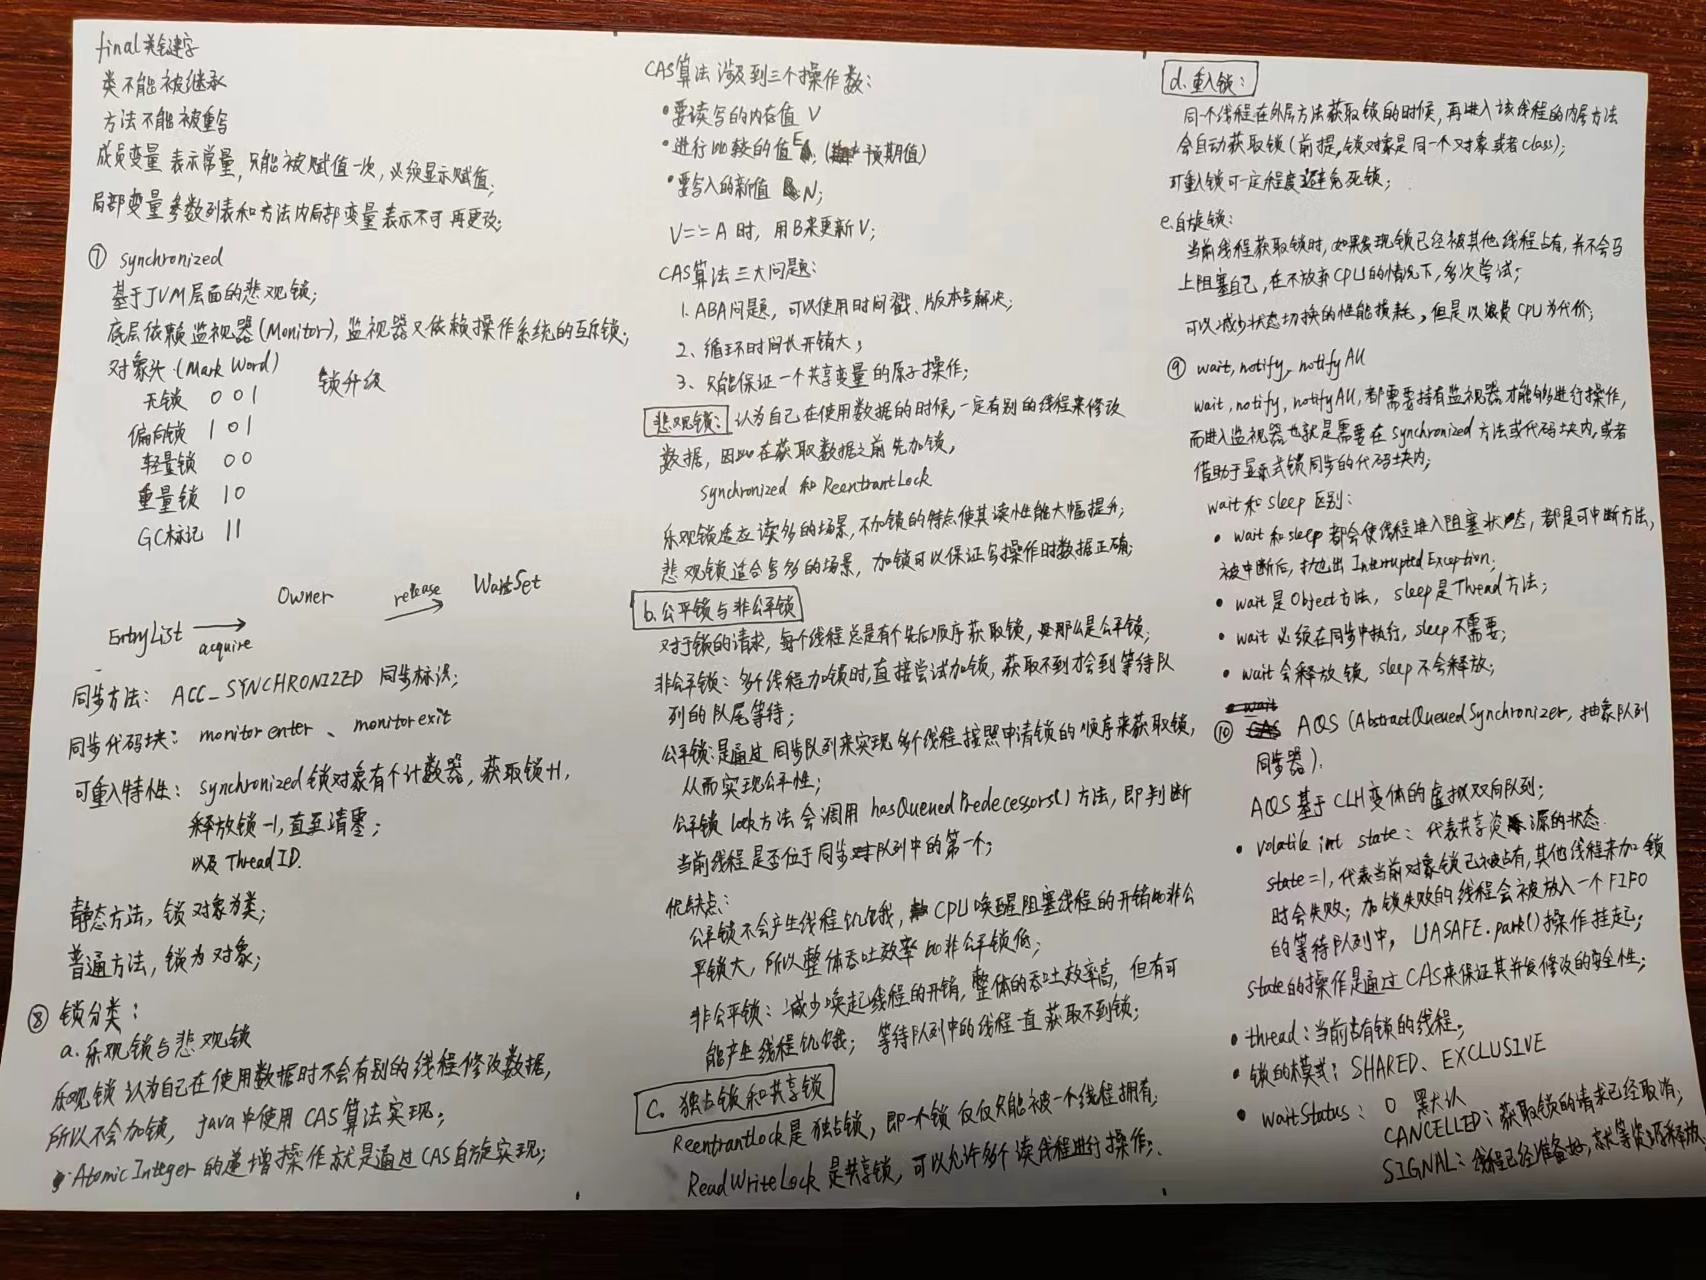 final关键字
类不能被继承
方法不能被重写
成员变量 表示常量，只能被赋值一次，必须显示赋值；
局部变量 参数列表和方法内局部变量表示不可再更改；
⑦ synchronized
基于JVM层面的悲观锁；
底层依赖监视器(Monitor)，监视器又依赖操作系统的互斥锁；
对象头(Mark Word)
锁升级
无锁 0 0 1
偏向锁 1 0 1
轻量锁 0 0
重量锁 1 0
GC标记 1 1
Owner
release
WaitSet
EntryList
acquire
同步方法： ACC_SYNCHRONIZED 同步标识；
同步代码块： monitor enter 、 monitor exit
可重入特性： synchronized锁对象有个计数器，获取锁+1，
释放锁-1，直至清零；
以及ThreadID.
静态方法，锁对象为类；
普通方法，锁为对象；
⑧ 锁分类：
a. 乐观锁与悲观锁
乐观锁认为自己在使用数据时不会有别的线程修改数据，
所以不会加锁， java中使用CAS算法实现；
AtomicInteger的递增操作就是通过CAS自旋实现；
CAS算法 涉及到三个操作数：
• 要读写的内存值 V
• 进行比较的值E；(预期值)
• 要写入的新值 N；
V == A 时，用B来更新V；
CAS算法三大问题：
1. ABA问题，可以使用时间戳、版本号解决；
2、循环时间长开销大；
3、只能保证一个共享变量的原子操作；
悲观锁： 认为自己在使用数据的时候，一定有别的线程来修改
数据，因此在获取数据之前先加锁，
synchronized 和 ReentrantLock
乐观锁适应读多的场景，不加锁的特点使其读性能大幅提升；
悲观锁适合写多的场景，加锁可以保证写操作时数据正确；
b.公平锁与非公平锁
对于锁的请求，每个线程总是有个先后顺序获取锁，那么是公平锁；
非公平锁：多个线程加锁时，直接尝试加锁，获取不到才会到等待队
列的队尾等待；
公平锁：是通过同步队列来实现多个线程按照申请锁的顺序来获取锁，
从而实现公平性；
公平锁 lock方法会调用 hasQueuedPredecessors()方法，即判断
当前线程是否位于同步队列中的第一个；
优缺点：
公平锁不会产生线程饥饿，CPU唤醒阻塞线程的开销比非公
平锁大，所以整体吞吐效率比非公平锁低；
非公平锁：减少唤起线程的开销，整体的吞吐效率高，但有可
能产生线程饥饿； 等待队列中的线程一直获取不到锁；
C. 独占锁和共享锁
ReentrantLock是独占锁，即一个锁仅仅只能被一个线程拥有；
ReadWriteLock是共享锁，可以允许多个读线程进行操作；
d.重入锁：
同一个线程在外层方法获取锁的时候，再进入该线程的内层方法
会自动获取锁(前提，锁对象是同一个对象或者class)；
可重入锁可一定程度避免死锁；
e.自旋锁：
当前线程获取锁时，如果发现锁已经被其他线程占有，并不会马
上阻塞自己，在不放弃CPU的情况下，多次尝试；
可以减少状态切换的性能损耗，但是以浪费CPU为代价；
⑨ wait, notify, notifyAll
wait, notify, notifyAll，都需要持有监视器才能够进行操作，
而进入监视器也就是需要在synchronized方法或代码块内，或者
借助于显示式锁同步的代码块内；
wait和sleep区别：
• wait和sleep都会使线程进入阻塞状态，都是可中断方法，
被中断后，抛出InterruptedException；
• wait是Object方法，sleep是Thread方法；
• wait必须在同步中执行，sleep不需要；
• wait会释放锁，sleep不会释放；
⑩ AQS (AbstractQueuedSynchronizer, 抽象队列
同步器).
AQS基于CLH变体的虚拟双向队列；
• volatile int state：代表共享资源的状态
state=1，代表当前对象锁已被占有，其他线程来加锁
时会失败；加锁失败的线程会被放入一个FIFO
的等待队列中，UASAFE.park()操作挂起；
state的操作是通过CAS来保证其并发修改的安全性；
• thread：当前占有锁的线程；
• 锁的模式：SHARED、EXCLUSIVE
• waitStatus： 0 默认
CANCELLED：获取锁的请求已经取消；
SIGNAL：线程已经准备好，就等资源释放